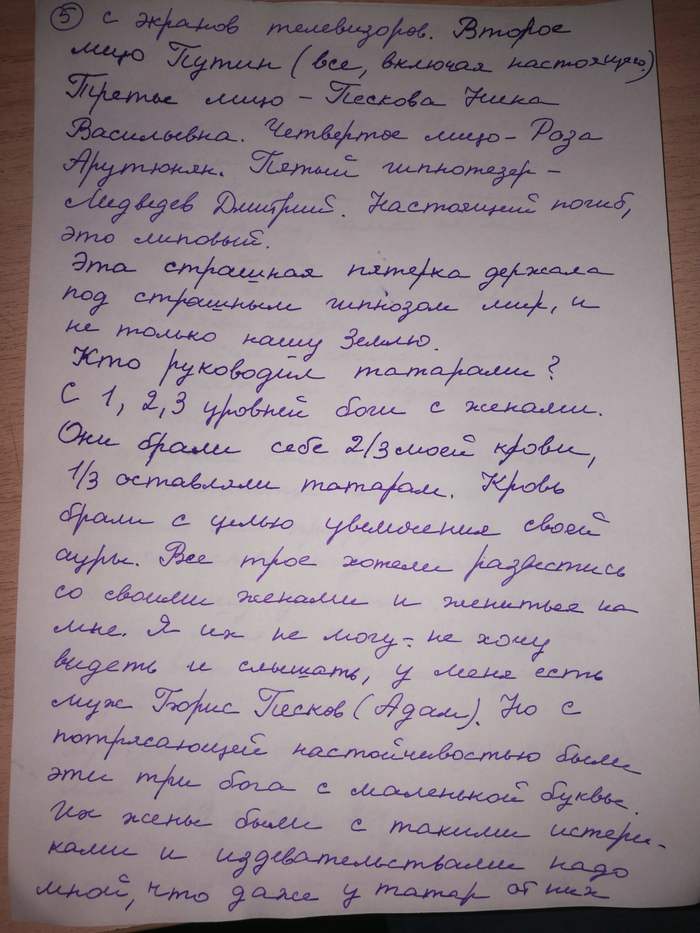 5 с экранов телевизоров. Второе
лицо Путин (все, включая настоящего.)
Третье лицо - Пескова Нина
Васильевна. Четвертое лицо - Роза
Арутюнян. Пятый гипнотезер -
Медведев Дмитрий. Настоящий погиб,
это липовый.
Эта страшная пятерка держала
под страшным гипнозом мир, и
не только нашу Землю.
Кто руководил татарами?
С 1, 2, 3 уровней боги с женами.
Они брали себе 2/3 моей крови,
1/3 оставляли татарам. Кровь
брали с целью увеличения своей
ауры. Все трое хотели развестись
со своими женами и жениться на
мне. Я их не могу - не хочу
видеть и слышать, у меня есть
муж Борис Песков (Адам). Но с
потрясающей настойчевостью были
эти три бога с маленькой буквы.
Их жены были с такими истери-
ками и издевательствами надо
мной, что даже у татар от них